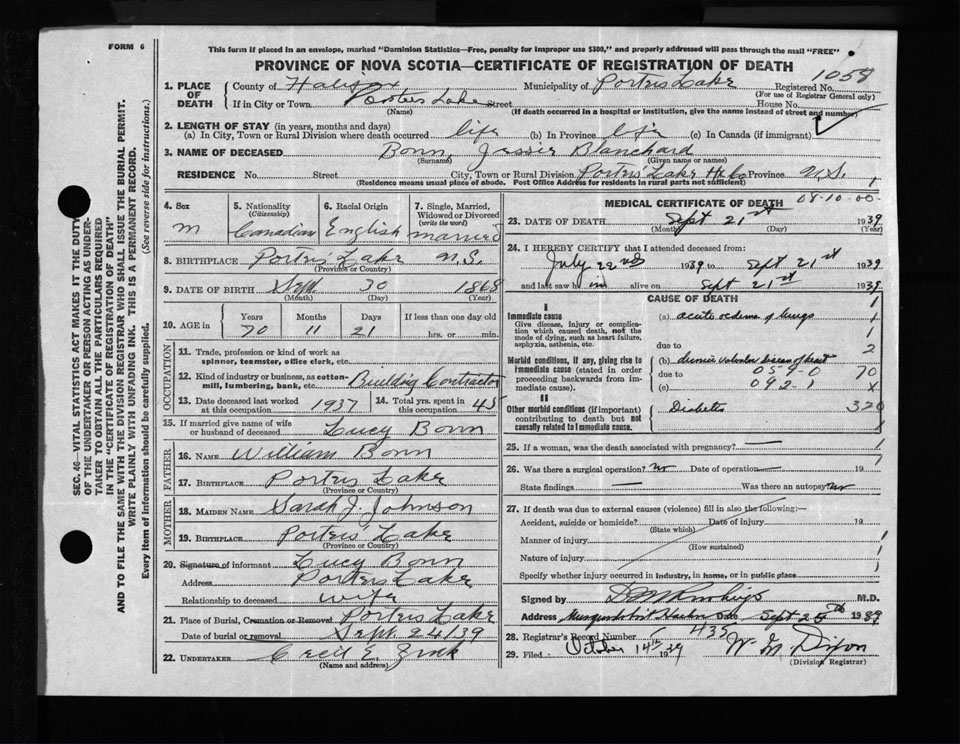 FORM 6
This form if placed in an envelope, marked "Dominion Statistics—Free, penalty for improper use $300," and properly addressed will pass through the mail "FREE"
PROVINCE OF NOVA SCOTIA—CERTIFICATE OF REGISTRATION OF DEATH
1058
1. PLACE OF DEATH County of Halifax Municipality of Porters Lake Registered No.
(For use of Registrar General only)
If in City or Town Porters Lake Street House No.
(Name) (If death occurred in a hospital or institution, give the name instead of street and number)
2. LENGTH OF STAY (in years, months and days)
(a) In City, Town or Rural Division where death occurred life (b) In Province life (c) In Canada (if immigrant)
3. NAME OF DECEASED Bonn, Jessie Blanchard
(Surname) (Given name or names)
RESIDENCE No. Street City, Town or Rural Division Porters Lake Hx Co Province N.S.
(Residence means usual place of abode. Post Office Address for residents in rural parts not sufficient)
4. Sex M
5. Nationality (Citizenship) Canadian
6. Racial Origin English
7. Single, Married, Widowed or Divorced (write the word) married
8. BIRTHPLACE Porters Lake N.S.
(Province or Country)
9. DATE OF BIRTH Sept. 30 1868
(Month) (Day) (Year)
10. AGE in Years Months Days If less than one day old
70 11 21 hrs. or min.
OCCUPATION
11. Trade, profession or kind of work as spinner, teamster, office clerk, etc.
12. Kind of industry or business, as cotton-mill, lumbering, bank, etc. Building Contractor
13. Date deceased last worked at this occupation 1937 14. Total yrs. spent in this occupation 45
15. If married give name of wife or husband of deceased Lucy Bonn
FATHER
16. NAME William Bonn
17. BIRTHPLACE Porters Lake
(Province or Country)
MOTHER
18. MAIDEN NAME Sarah J. Johnson
19. BIRTHPLACE Porters Lake
(Province or Country)
20. Signature of informant Lucy Bonn
Address Porters Lake
Relationship to deceased wife
21. Place of Burial, Cremation or Removal Porters Lake
Date of burial or removal Sept. 24/39
22. UNDERTAKER Cecil E. Zink
(Name and address)
MEDICAL CERTIFICATE OF DEATH 08-10-00
23. DATE OF DEATH Sept 21st 1939
(Month) (Day) (Year)
24. I HEREBY CERTIFY that I attended deceased from:
July 22nd 1939 to Sept 21st 1939
and last saw him alive on Sept 21st 1939
CAUSE OF DEATH
I
Immediate cause
Give disease, injury or complication which caused death, not the mode of dying, such as heart failure, asphyxia, asthenia, etc.
(a) acute oedema of lungs
due to
Morbid conditions, if any, giving rise to immediate cause (stated in order proceeding backwards from immediate cause).
(b) chronic valvular disease of heart
due to 059-0
(c) 092-1
II
Other morbid conditions (if important) contributing to death but not causally related to immediate cause.
Diabetes 320
25. If a woman, was the death associated with pregnancy? —
26. Was there a surgical operation? no Date of operation — 19
State findings — Was there an autopsy? no
27. If death was due to external causes (violence) fill in also the following:—
Accident, suicide or homicide? Date of injury 19
(State which)
Manner of injury
(How sustained)
Nature of injury
Specify whether injury occurred in industry, in home, or in public place
Signed by M.D.
Address Musquodoboit Harbor Date Sept 25th 1939
28. Registrar's Record Number 435
29. Filed October 14th 1939 W. G. Dixon
(Division Registrar)
SEC. 46—VITAL STATISTICS ACT MAKES IT THE DUTY
OF THE UNDERTAKER OR PERSON ACTING AS UNDERTAKER TO OBTAIN ALL THE PARTICULARS REQUIRED
IN THE "CERTIFICATE OF REGISTRATION OF DEATH"
AND TO FILE THE SAME WITH THE DIVISION REGISTRAR WHO SHALL ISSUE THE BURIAL PERMIT.
WRITE PLAINLY WITH UNFADING INK. THIS IS A PERMANENT RECORD.
Every item of information should be carefully supplied. (See reverse side for instructions.)